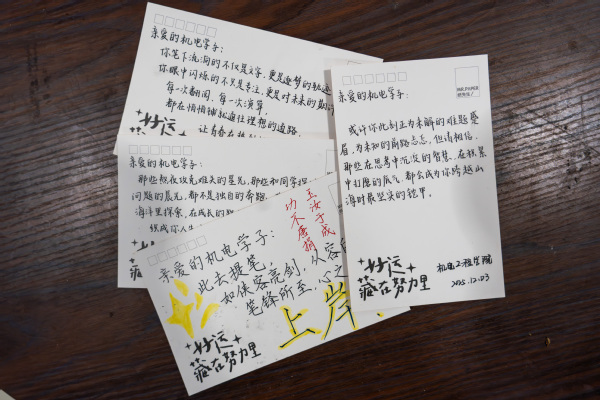 亲爱的机电学子:
你笔下流淌的不仅是文字,更是逐梦的轨迹
你眼中闪烁的不只是专注,更是对未来的期许
每一次翻阅,每一次演算,
都在悄悄铺就通往理想的道路,
让青春在
好运
亲爱的机电学子:
那些熬夜攻克难关的星光,那些和同学
问题的晨光,都不是独自的奔跑,
海洋里探索,在成长的
终成你人生
藏
亲爱的机电学子:
此去提笔,
如侠客亮剑,从容
笔锋所至,心之
玉汝于成
功不唐捐
上岸
好运
藏在努力里
亲爱的机电学子:
或许你此刻正为未解的难题蹙
眉,为未知的前路忐忑,但请相信,
那些在思考中沉淀的智慧,在积累
中打磨的底气,都会成为你跨越山
海时最坚实的铠甲。
好运
藏在努力里
机电工程学院
2025.12.03